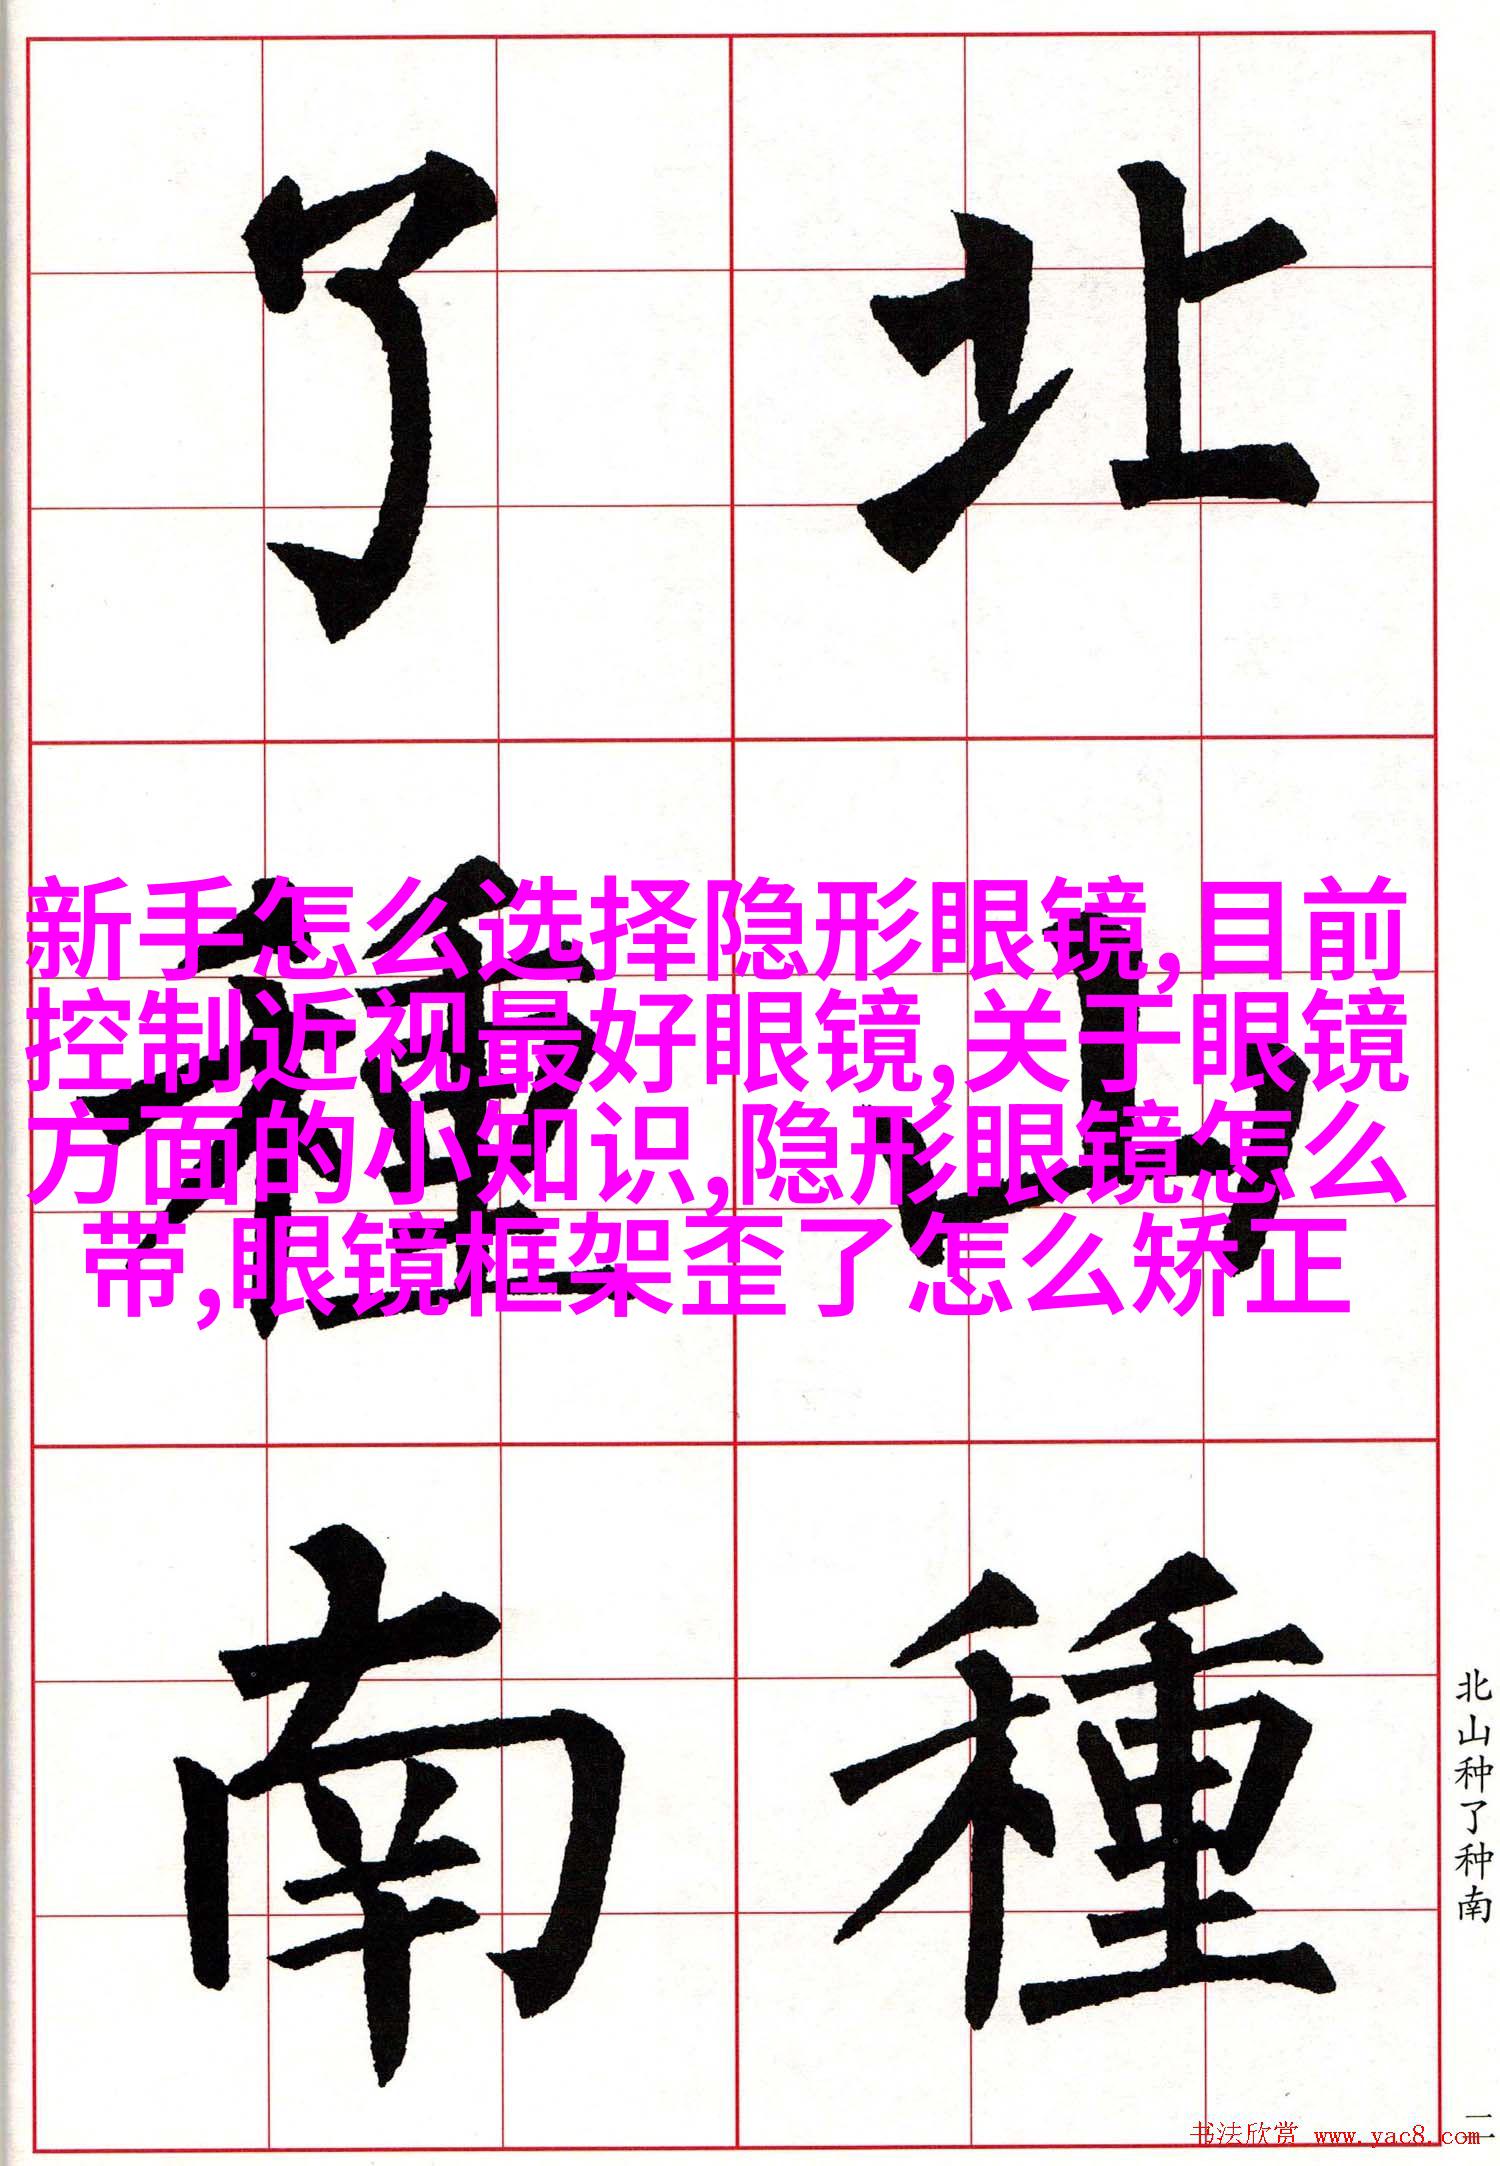 北
山
種
了
種
南
新手怎么选择隐形眼镜,目前
控制近视最好眼镜,关于眼镜
方面的小知识,隐形眼镜怎么
带,眼镜框架歪了怎么矫正
北山种了种南
二
书法欣赏 www.yac8.com